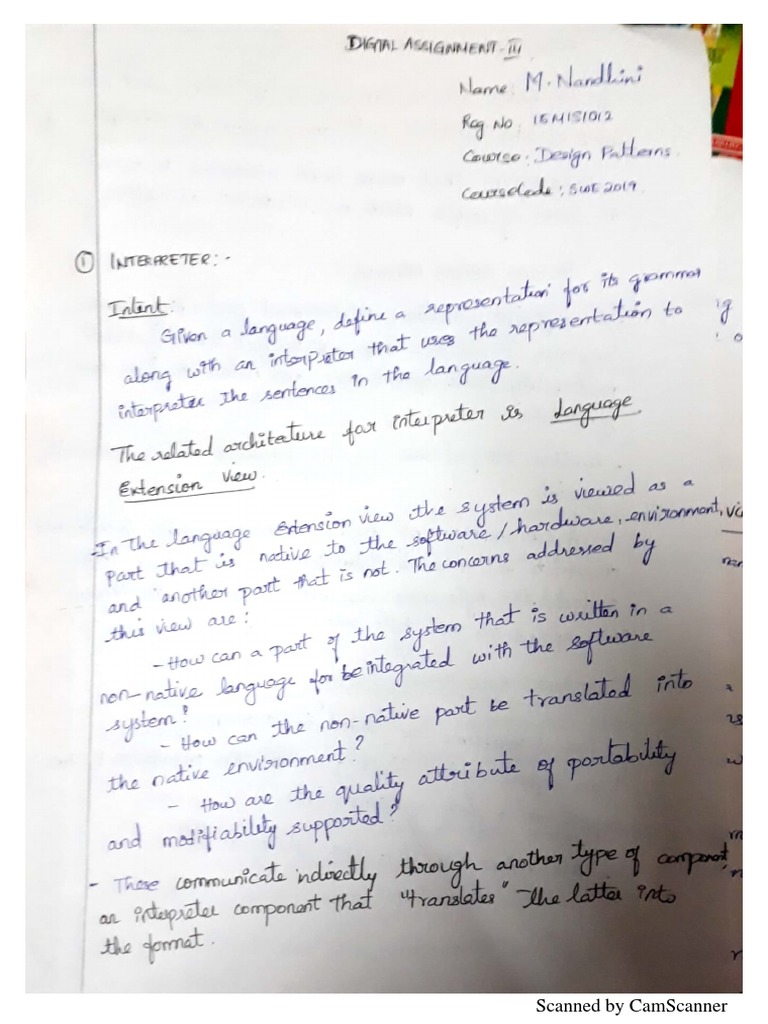 DIGITAL ASSIGNMENT - III
Name: M. Nandhini
Reg No: 15MIS1012
Course: Design Patterns.
Course Code: SWE 2019.
① INTERPRETER:-
Intent:
Given a language, define a representation for its grammar
along with an interpreter that uses the representation to
interpreter the sentences in the language.
The related architecture for interpreter is Language
Extension view.
- In the language Extension view the system is viewed as a
part that is native to the software/hardware, environment,
and another part that is not. The concerns addressed by
this view are:
- How can a part of the system that is written in a
non-native language be integrated with the software
system?
- How can the non-native part be translated into
the native environment?
- How are the quality attribute of portability
and modifiability supported?
- These communicate indirectly through another type of component
an interpreter component that "translates" the latter into
the format.
Scanned by CamScanner